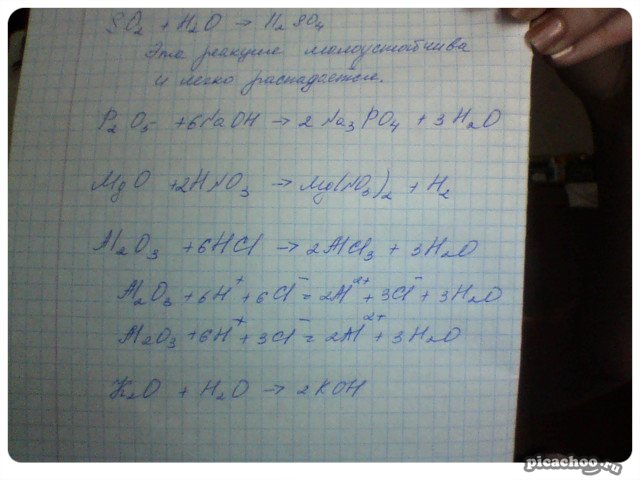 SO₂ + H₂O → H₂SO₄
Эта реакция малоустойчива
и легко распадается.
P₂O₅ + 6NaOH → 2Na₃PO₄ + 3H₂O
MgO + 2HNO₃ → Mg(NO₃)₂ + H₂
Al₂O₃ + 6HCl → 2AlCl₃ + 3H₂O
Al₂O₃ + 6H⁺ + 6Cl⁻ = 2Al²⁺ + 3Cl⁻ + 3H₂O
Al₂O₃ + 6H⁺ + 3Cl⁻ = 2Al²⁺ + 3H₂O
K₂O + H₂O → 2KOH
picachoo.ru